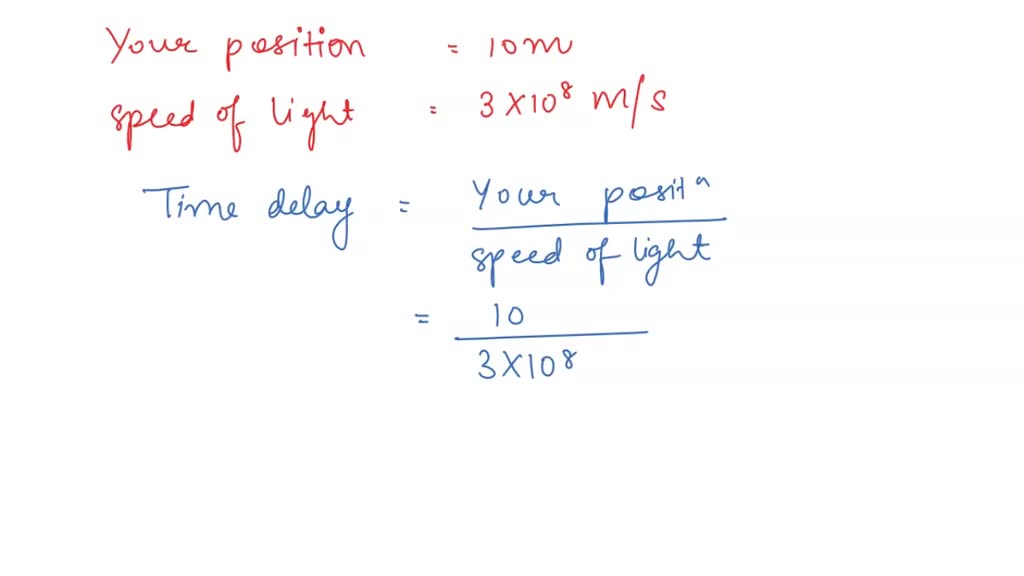 Your position = 10m
speed of light = 3×10⁸ m/s
Time delay = Your positⁿ
speed of light
= 10
3×10⁸